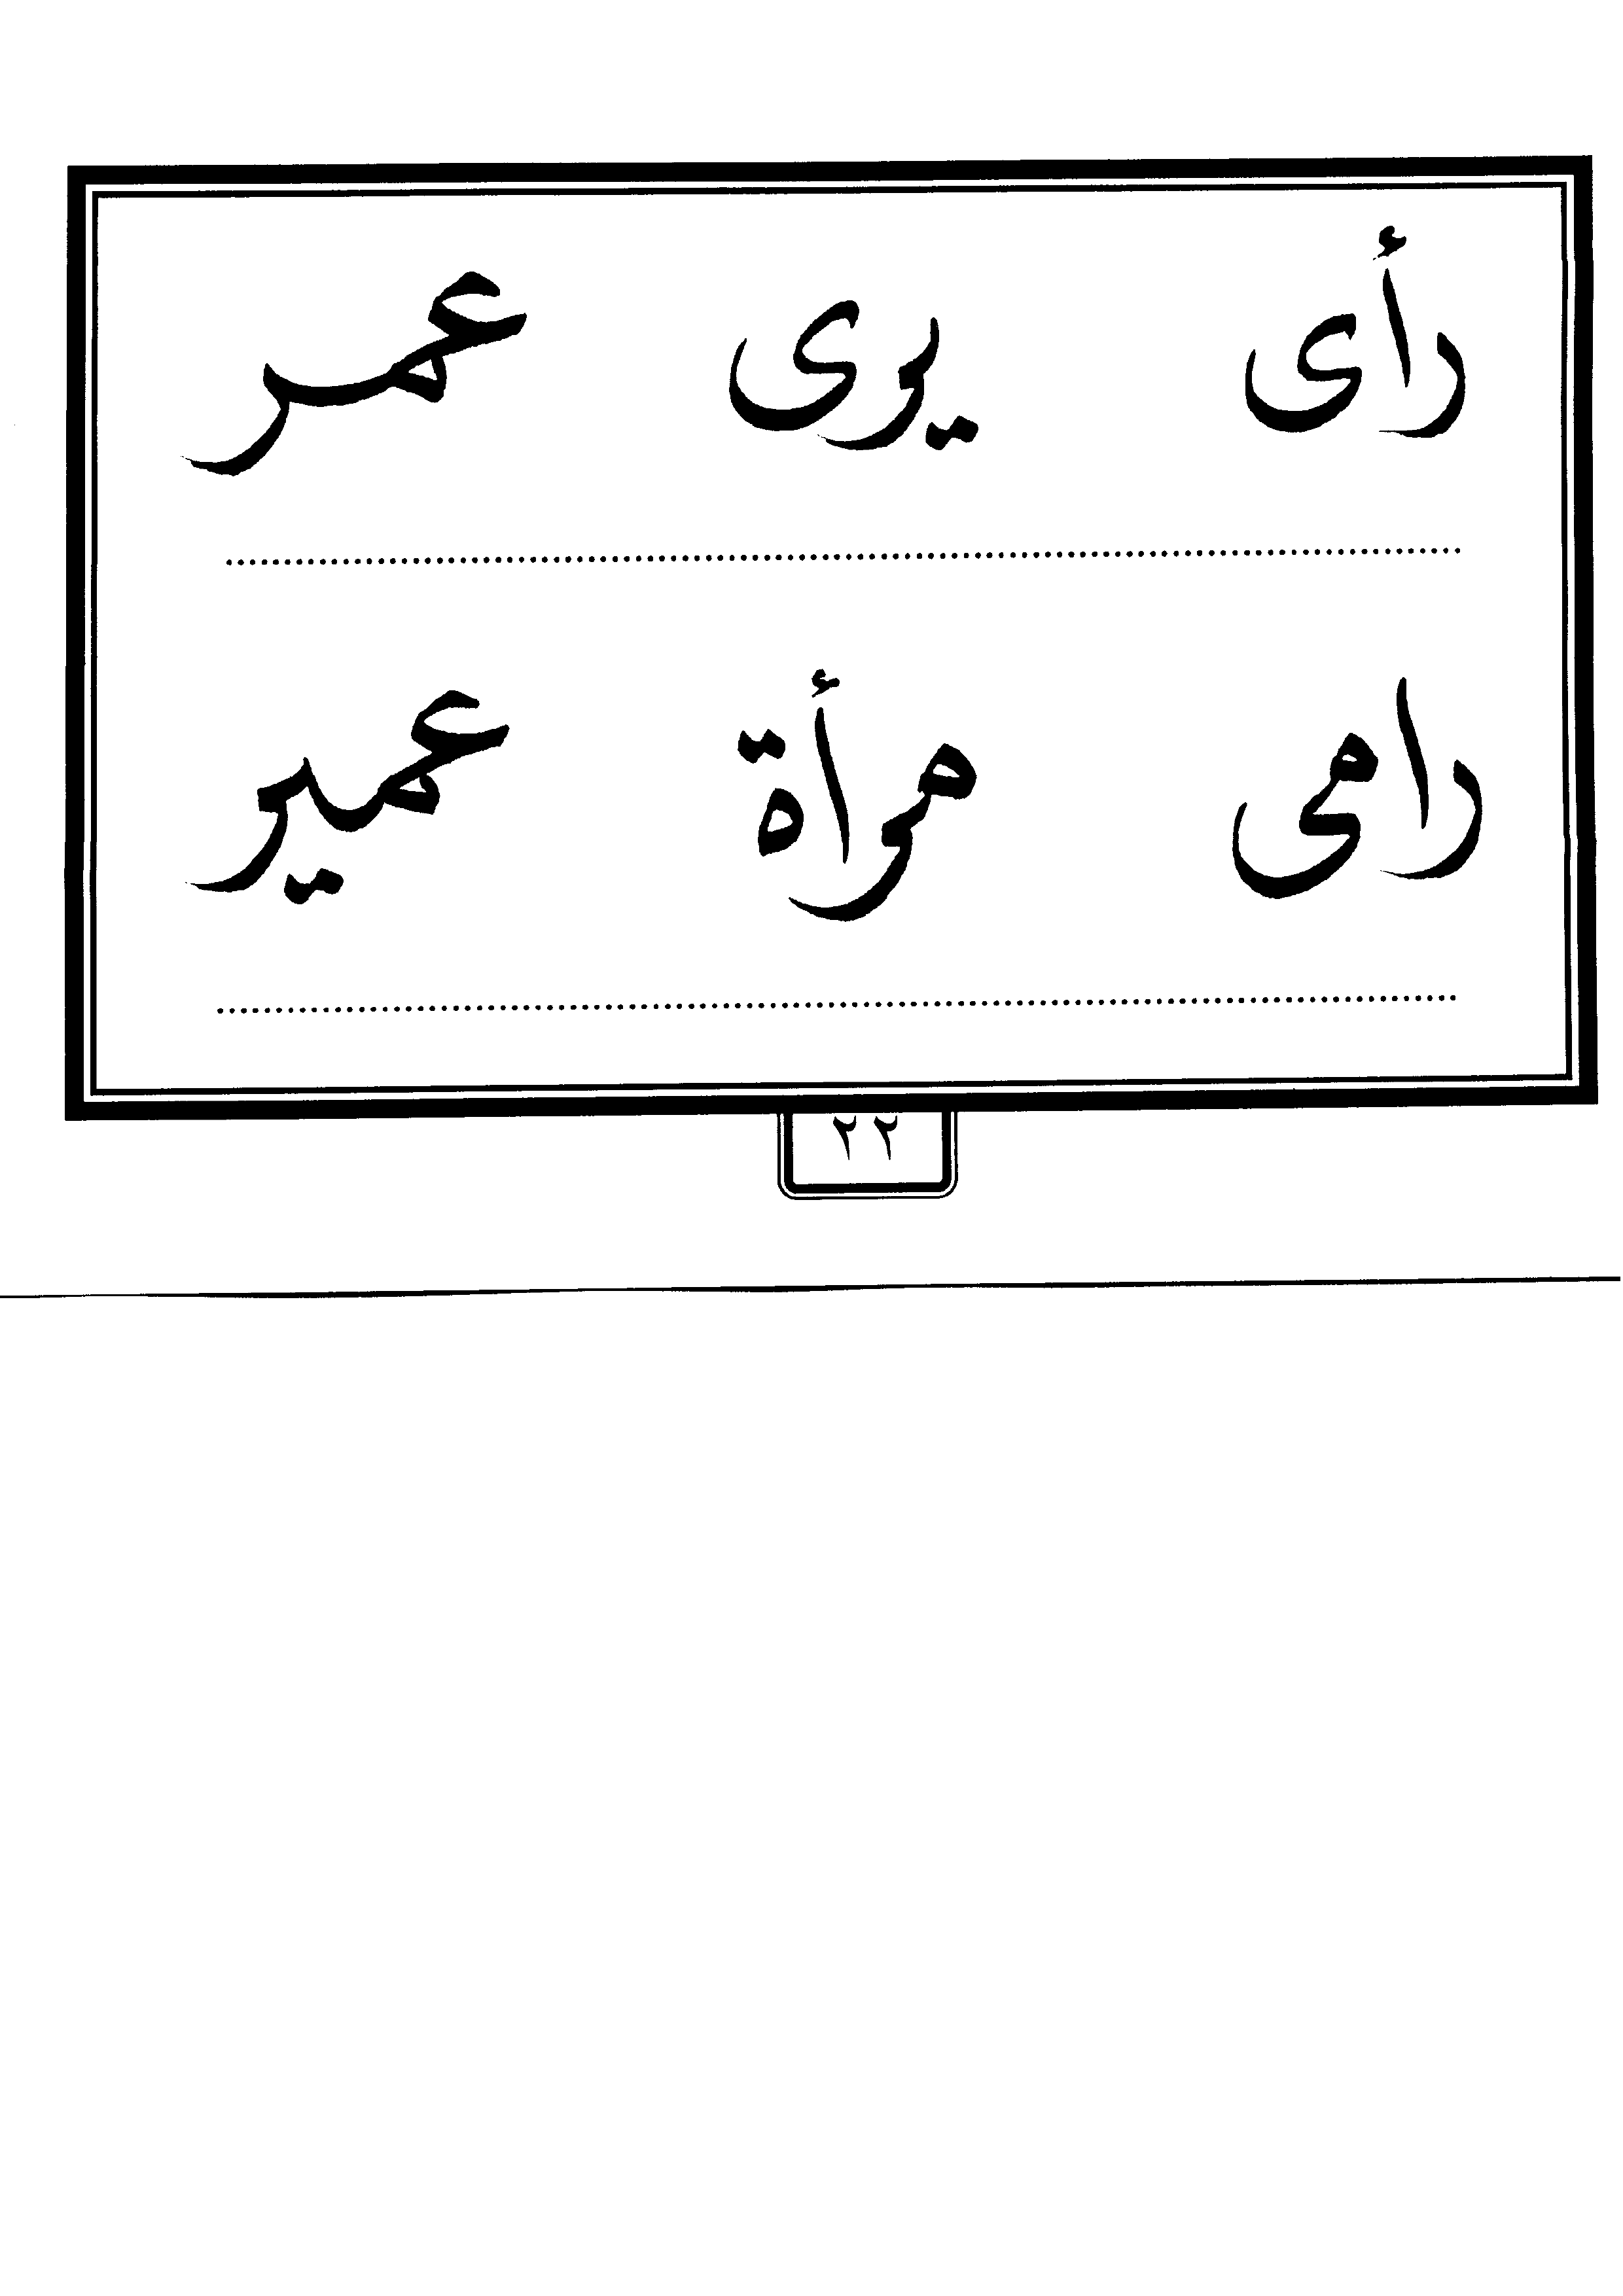 رأى يرى عمر
رامى مرأة عمير
٢٢